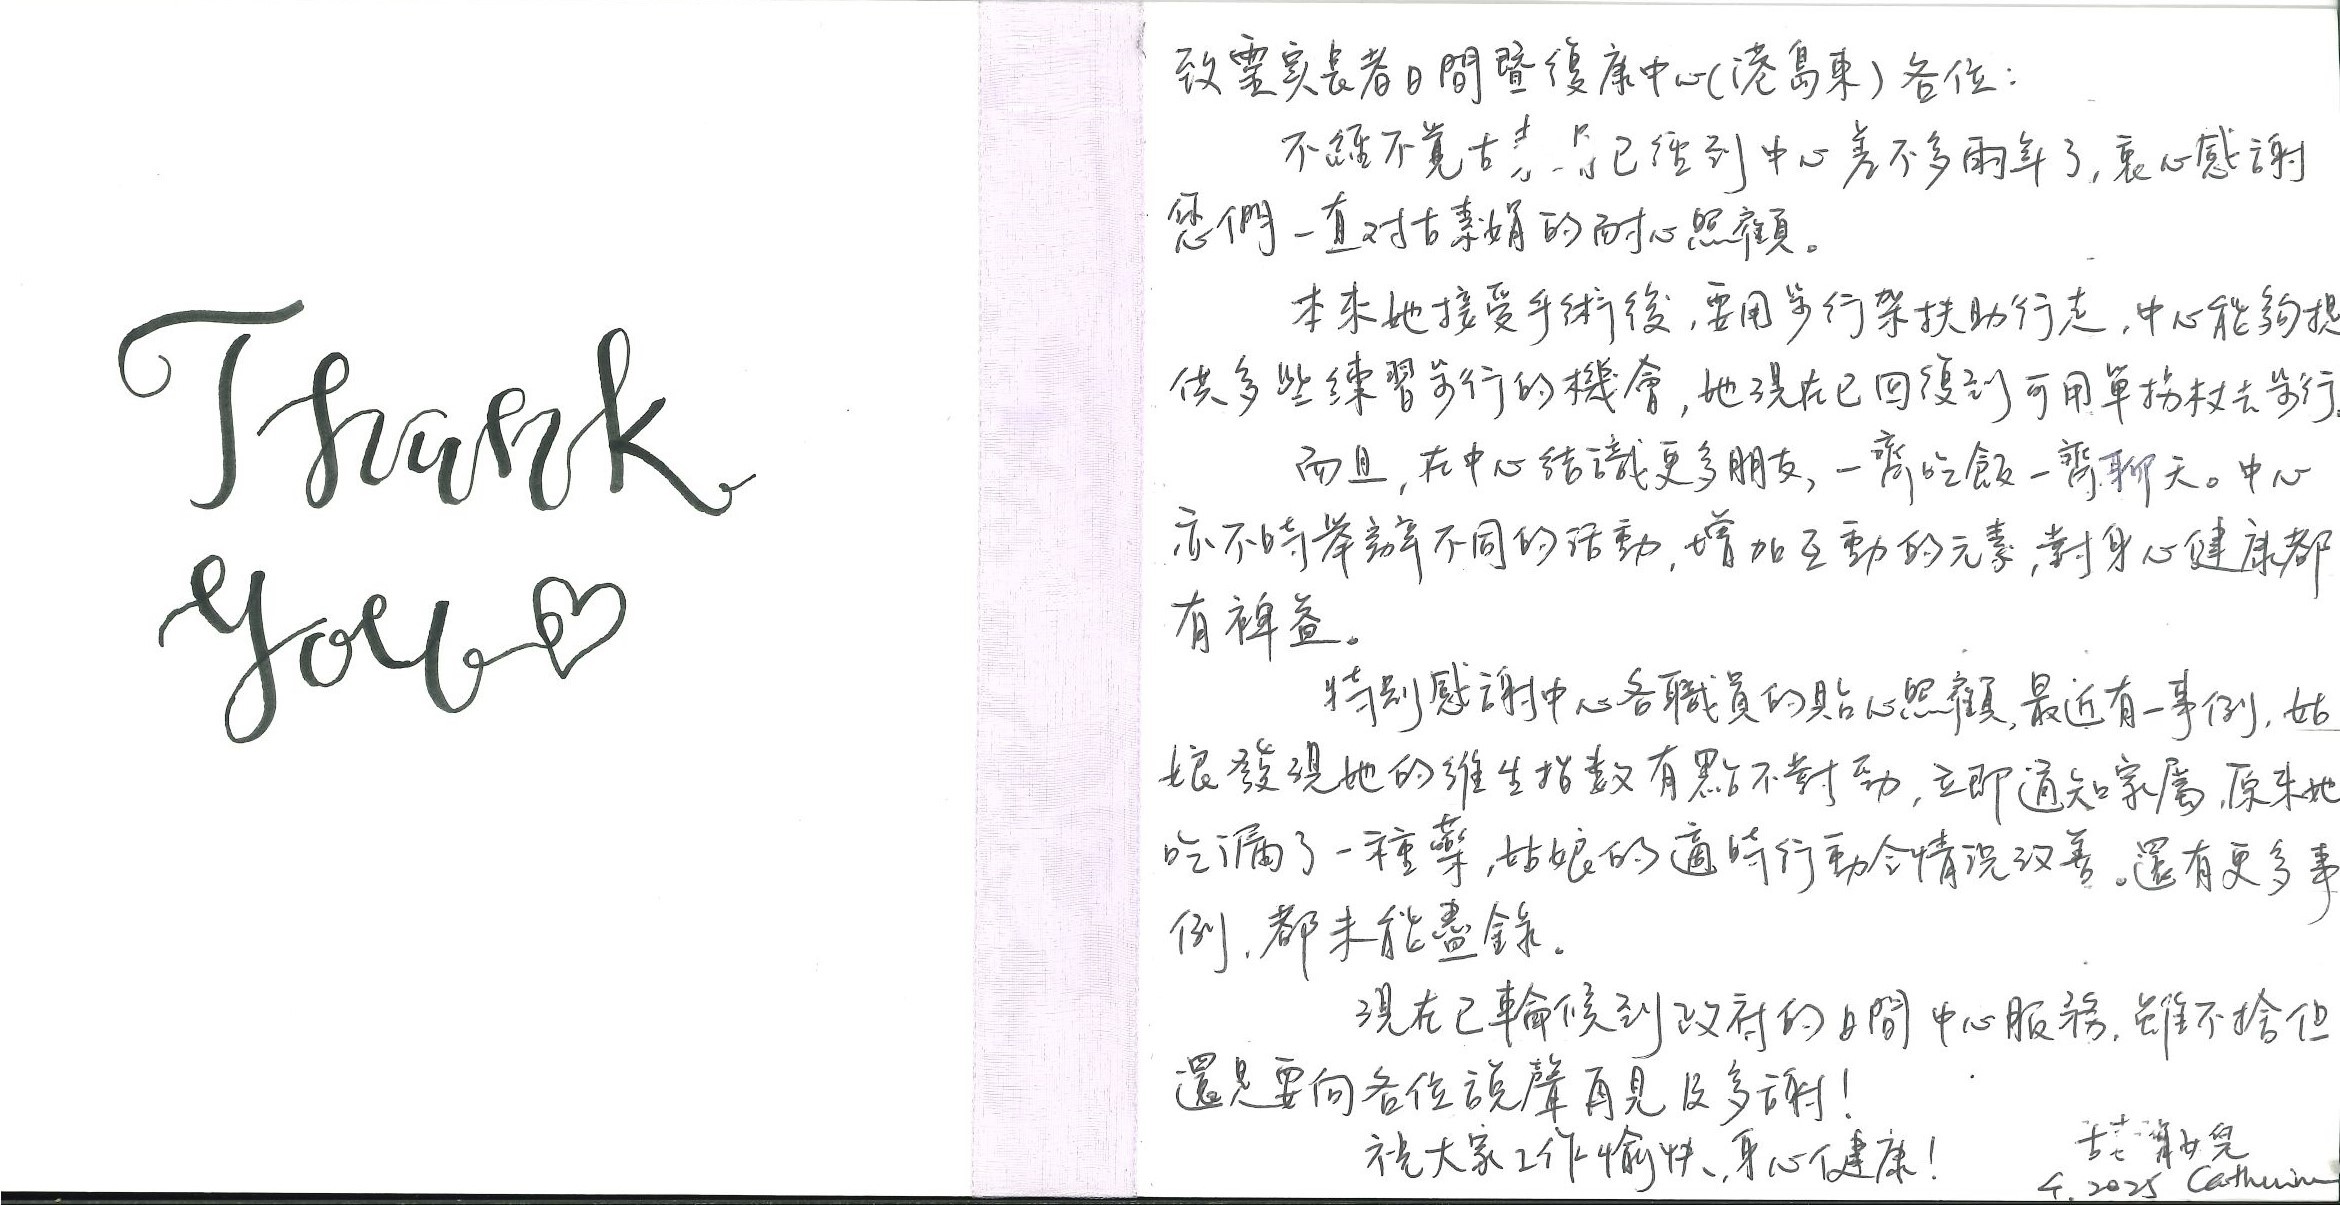 Thank
You
致靈実長者日間暨復康中心(港島東)各位：
不經不覺古 已經到中心差不多兩年了,衷心感謝
您們一直对古素娟的耐心照顧。
本來她接受手術後,要用步行架扶助行走,中心能夠提
供多些練習步行的機會,她現在已回復到可用單拐杖去步行。
而且,在中心結識更多朋友,一齊吃飯一齊聊天。中心
亦不時舉辦不同的活動,增加互動的元素,對身心健康都
有裨益。
特別感謝中心各職員的貼心照顧,最近有一事例,姑
娘發現她的維生指数有點不對勁,立即通知家屬,原來她
吃漏了一種藥,姑娘的適時行動令情況改善。還有更多事
例,都未能盡錄。
現在已輪候到政府的日間中心服務,雖不捨但
還是要向各位說聲再見及多謝!
祝大家工作愉快、身心健康!
古 女兒
4.2025 Catherine